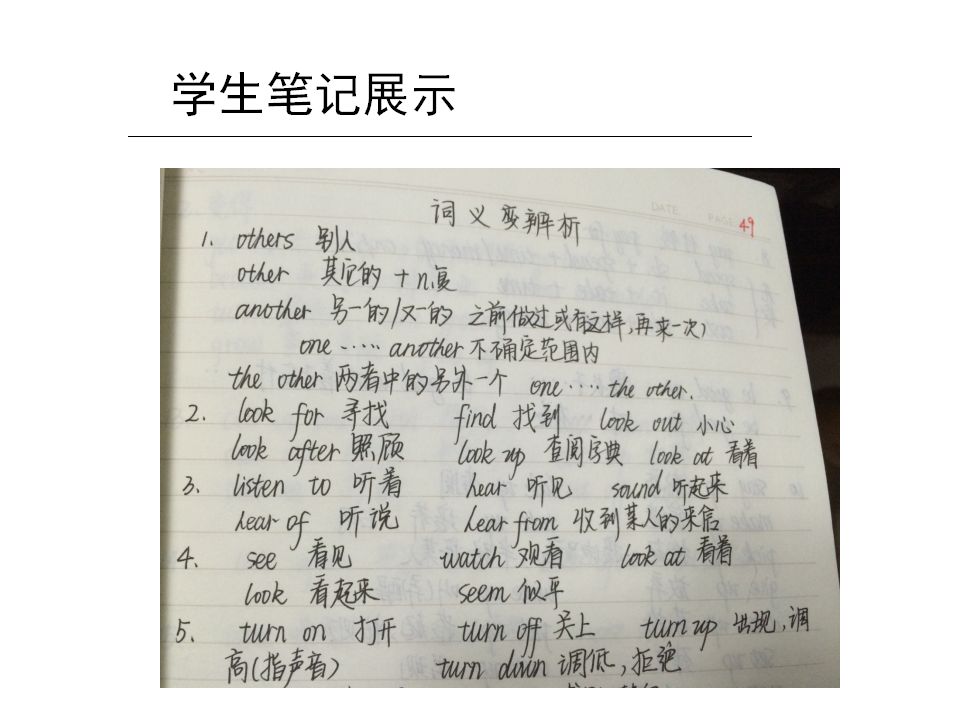 学生笔记展示
DATE. PAGE. 49
词义变辨析
1. others 别人
other 其它的 +n.复
another 另一的/又一的 之前做过或有这样,再来一次)
one ..... another 不确定范围内
the other 两者中的另外一个 one .... the other.
2. look for 寻找 find 找到 look out 小心
look after 照顾 look up 查阅字典 look at 看着
3. listen to 听着 hear 听见 sound 听起来
hear of 听说 hear from 收到某人的来信
4. see 看见 watch 观看 look at 看着
look 看起来 seem 似乎
5. turn on 打开 turn off 关上 turn up 出现,调
高(指声音) turn down 调低,拒绝